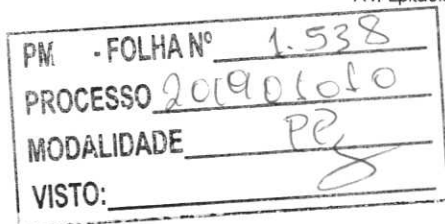 PM - FOLHA Nº 1.538
PROCESSO 201901010
MODALIDADE PP
VISTO: